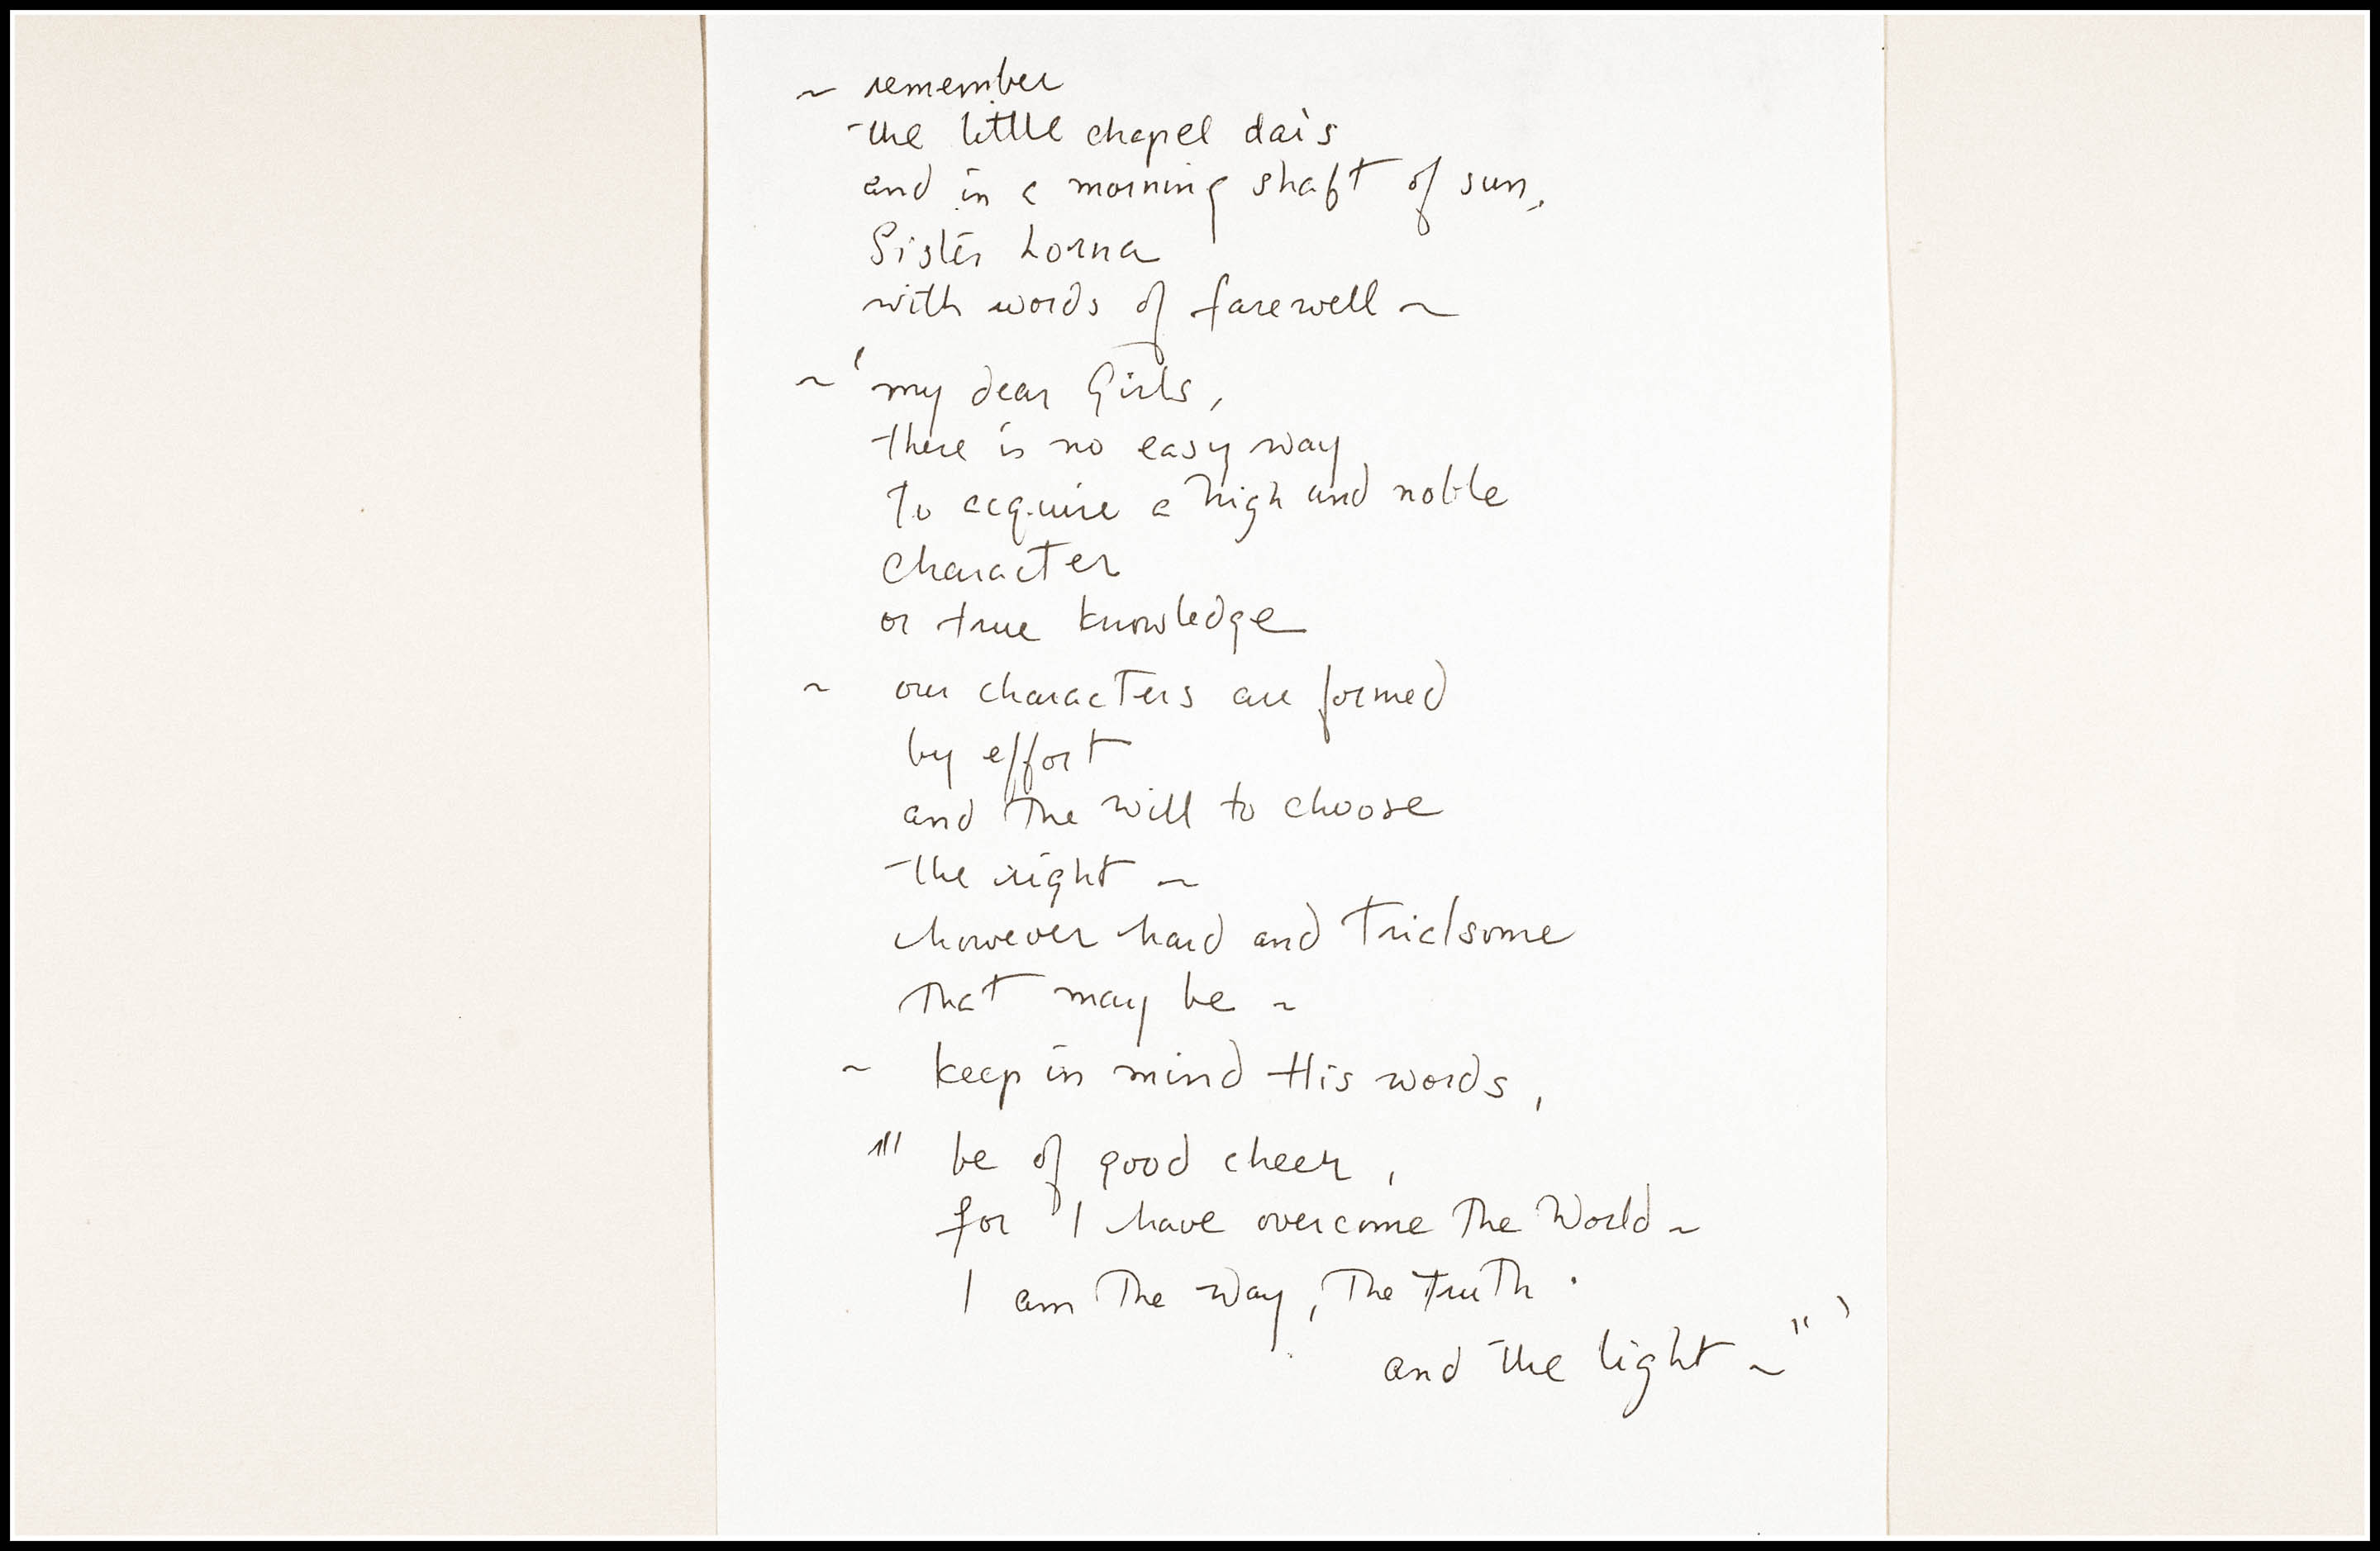 ~ remember
the little chapel dais
and in a morning shaft of sun,
Sister Lorna
with words of farewell ~
~ 'my dear Girls,
there is no easy way
to acquire a high and noble
character
or true knowledge
~ our characters are formed
by effort
and the will to choose
the right ~
however hard and trialsome
that may be ~
~ keep in mind His words,
"' be of good cheer,
for I have overcome the World ~
I am the way, the truth
and the light ~" '